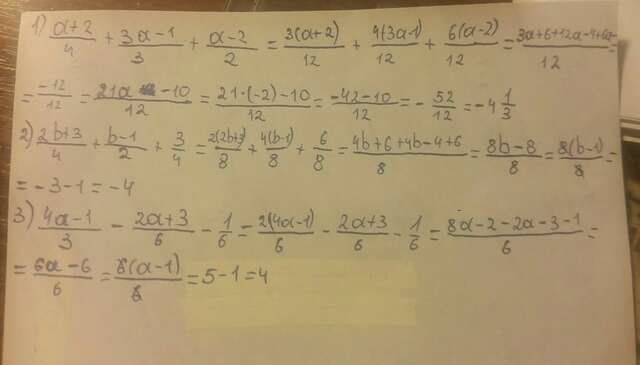 1) (a+2)/4 + (3a-1)/3 + (a-2)/2 = 3(a+2)/12 + 4(3a-1)/12 + 6(a-2)/12 = (3a+6+12a-4+6a-)/12
= -12/12 = (21a -10)/12 = (21·(-2)-10)/12 = (-42-10)/12 = -52/12 = -4 1/3
2) (2b+3)/4 + (b-1)/2 + 3/4 = 2(2b+3)/8 + 4(b-1)/8 + 6/8 = (4b+6+4b-4+6)/8 = (8b-8)/8 = 8(b-1)/8 =
= -3-1 = -4
3) (4a-1)/3 - (2a+3)/6 - 1/6 = 2(4a-1)/6 - (2a+3)/6 - 1/6 = (8a-2-2a-3-1)/6 =
= (6a-6)/6 = 6(a-1)/6 = 5-1 = 4